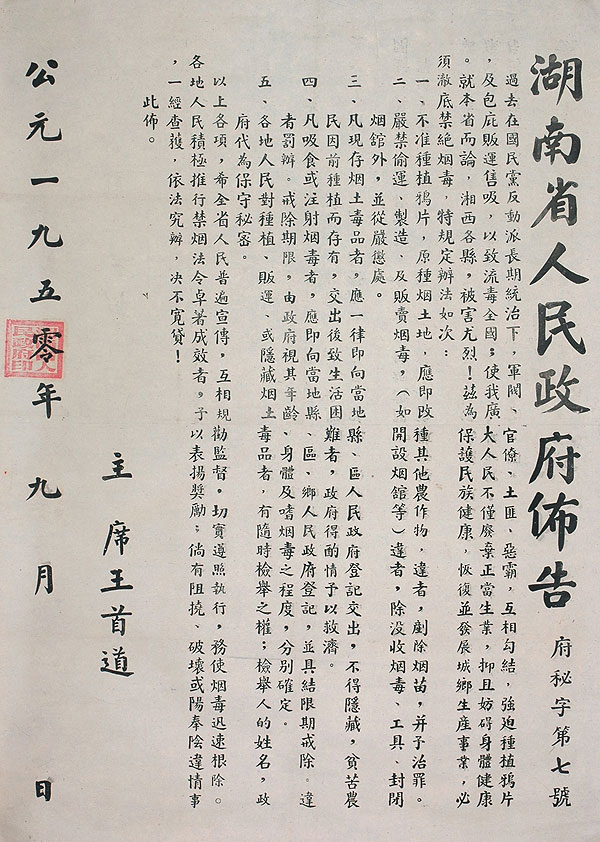 湖南省人民政府佈告
府秘字第七號
過去在國民黨反動派長期統治下，軍閥、官僚、土匪、惡霸，互相勾結，強迫種植鴉片
，及包庇販運售吸，以致流毒全國；使我廣大人民不僅廢棄正當生業，抑且妨碍身體健康
。就本省而論，湘西各縣，被害尤烈！茲為保護民族健康，恢復並發展城鄉生產事業，必
須澈底禁絕烟毒，特規定辦法如次：
一、不准種植鴉片，原種烟土地，應即改種其他農作物，違者，剷除烟苗，并予治罪。
二、嚴禁偷運、製造、及販賣烟毒，（如開設烟館等）違者，除没收烟毒、工具、封閉
烟館外，並從嚴懲處。
三、凡現存烟土毒品者，應一律即向當地縣、區人民政府登記交出，不得隱藏，貧苦農
民因前種植而存有，交出後致生活困難者，政府得酌情予以救濟。
四、凡吸食或注射烟毒者，應即向當地縣、區、鄉人民政府登記，並具結限期戒除。違
者罰辦。戒除期限，由政府視其年齡、身體及嗜烟毒之程度，分別確定。
五、各地人民對種植、販運、或隱藏烟土毒品者，有隨時檢舉之權；檢舉人的姓名，政
府代為保守秘密。
以上各項，希全省人民普遍宣傳，互相規勸監督。切實遵照執行，務使烟毒迅速根除。
各地人民積極推行禁烟法令卓著成效者，予以表揚獎勵；倘有阻撓、破壞或陽奉陰違情事
，一經查獲，依法究辦，决不寬貸！
此佈。
主席王首道
公元一九五零年九月 日